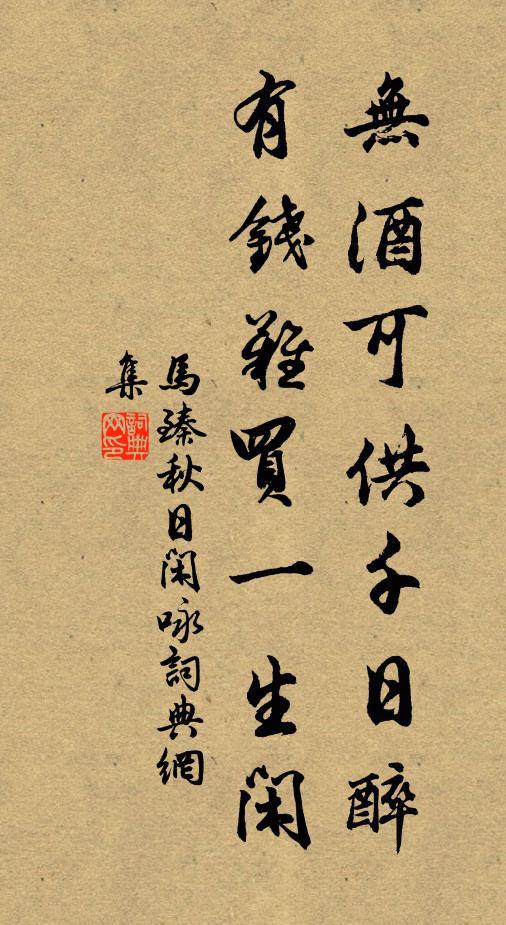 無酒可供千日醉
有錢難買一生闲
馬臻秋日闲咏詞典網
集
詞典
网印